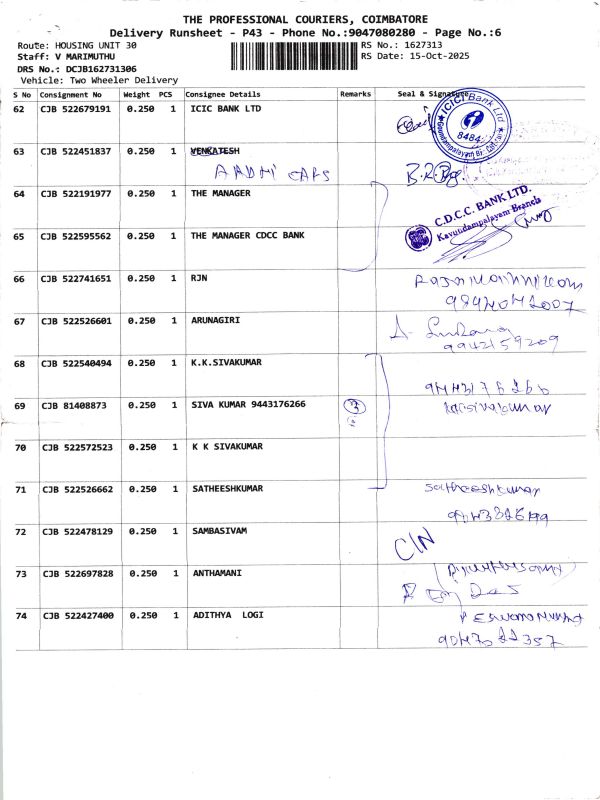 THE PROFESSIONAL COURIERS, COIMBATORE
Delivery Runsheet - P43 - Phone No.:9047080280 - Page No.:6
Route: HOUSING UNIT 30 RS No.: 1627313
Staff: V MARIMUTHU RS Date: 15-Oct-2025
DRS No.: DCJB162731306
Vehicle: Two Wheeler Delivery
S No Consignment No Weight PCS Consignee Details Remarks Seal & Signature
62 CJB 522679191 0.250 1 ICIC BANK LTD
ICICI Bank Ltd
8484
63 CJB 522451837 0.250 1 VENKATESH
64 CJB 522191977 0.250 1 THE MANAGER
C.D.C.C. BANK LTD.
Kavundampalayam Branch
65 CJB 522595562 0.250 1 THE MANAGER CDCC BANK
66 CJB 522741651 0.250 1 RJN
67 CJB 522526601 0.250 1 ARUNAGIRI
9942159209
68 CJB 522540494 0.250 1 K.K.SIVAKUMAR
69 CJB 81408873 0.250 1 SIVA KUMAR 9443176266
70 CJB 522572523 0.250 1 K K SIVAKUMAR
71 CJB 522526662 0.250 1 SATHEESHKUMAR
Satheeshkumar
72 CJB 522478129 0.250 1 SAMBASIVAM
C/N
73 CJB 522697828 0.250 1 ANTHAMANI
74 CJB 522427400 0.250 1 ADITHYA LOGI